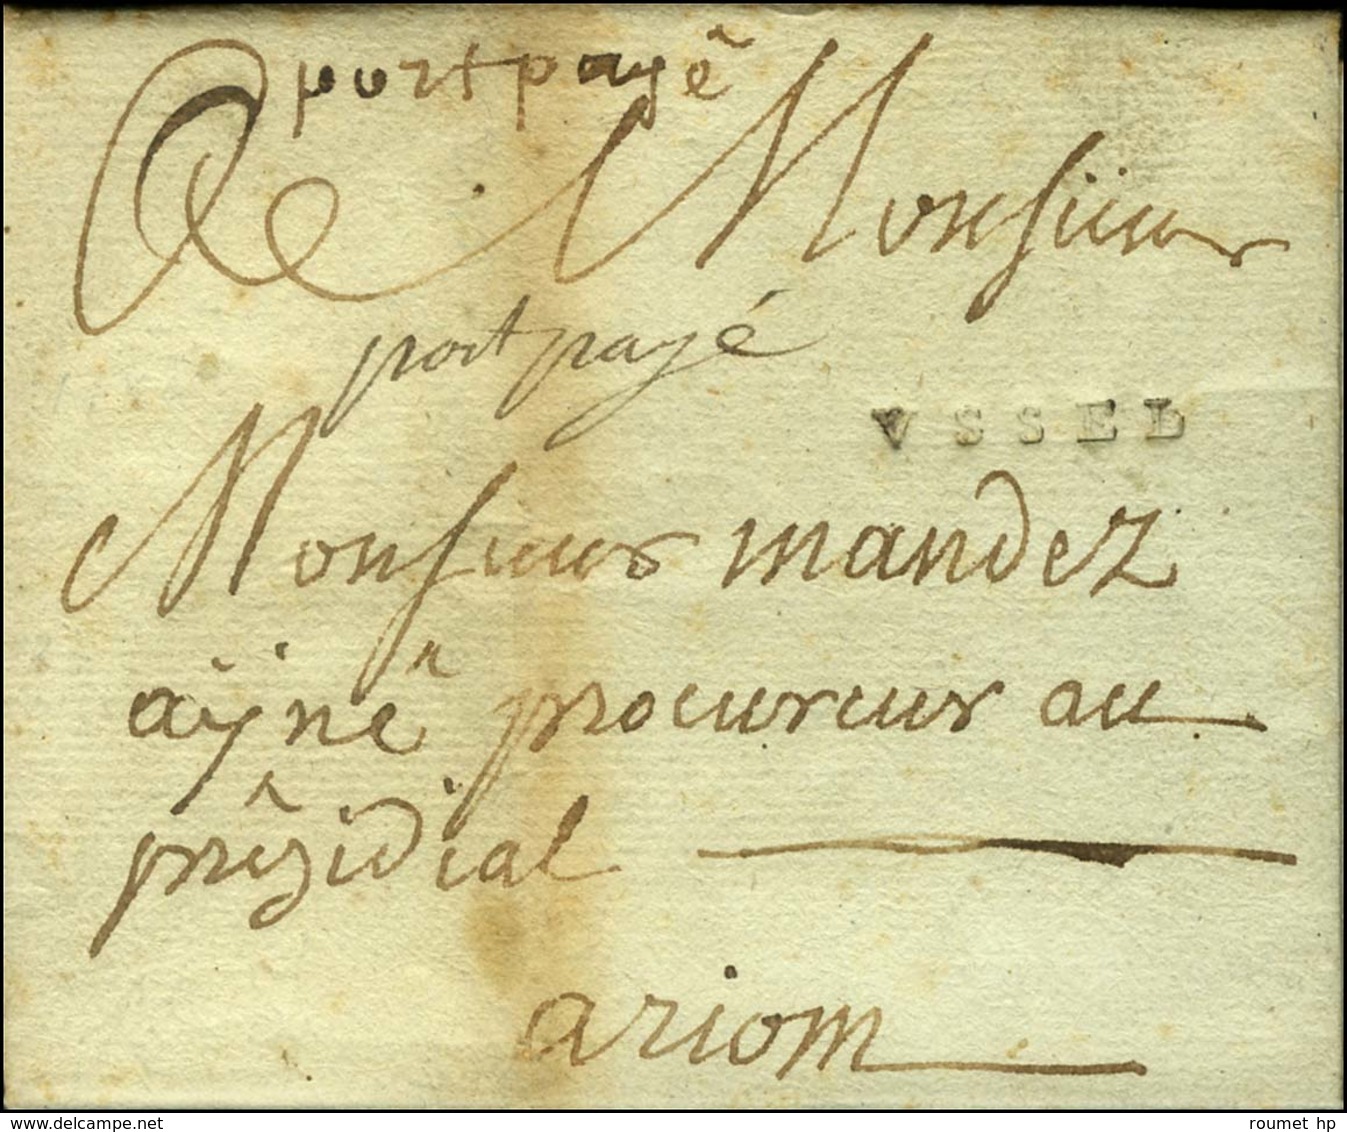 port payé
A Monsieur
port payé
VSSEL
Monsieur mandez
aÿné procureur au
prêzidial
ariom
roumet hp